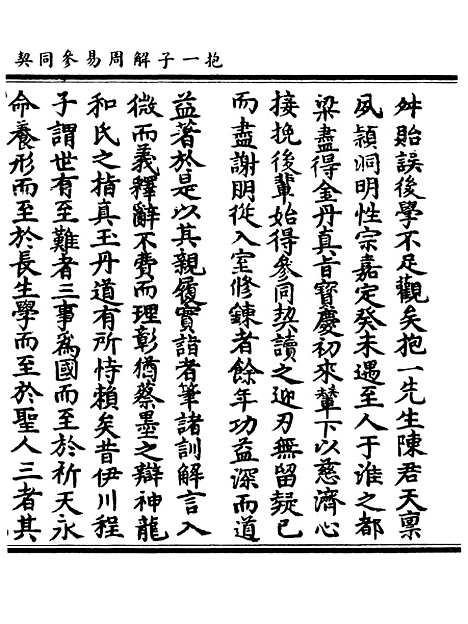 抱一子解周易參同契
舛貽誤後學不足觀矣抱一先生陳君天禀
夙頴洞明性宗嘉定癸未遇至人于淮之都
梁盡得金丹真旨寶慶初來輦下以慈濟心
接挽後輩始得參同契讀之迎刃無留疑已
而盡謝朋從入室修鍊者餘年功益深而道
益著於是以其親履實詣者筆諸訓解言入
微而義釋辭不費而理彰猶蔡墨之辯神龍
和氏之指真玉丹道有所恃賴矣昔伊川程
子謂世有至難者三事為國而至於祈天永
命養形而至於長生學而至於聖人三者其